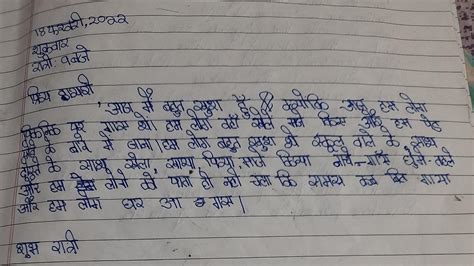 18 फरवरी, 2022
शुक्रवार
रात्री 9 बजे
प्रिय डायरी
आज मैं बहुत खुश हूँ क्योंकि आज हम लोग
पिकनिक पर गए थे। हम लोग वहाँ खेले मजे किया और हम पेड़
के बारे में जाना। हम लोग बहुत खुश थे स्कूल वाले के साथ
के साथ खेला, खाया पिया, मजे किया
और हम लोगो को पता ही नहीं चला कि समय कब बित गया
और हम लोग घर आ गए।
शुभ रात्री